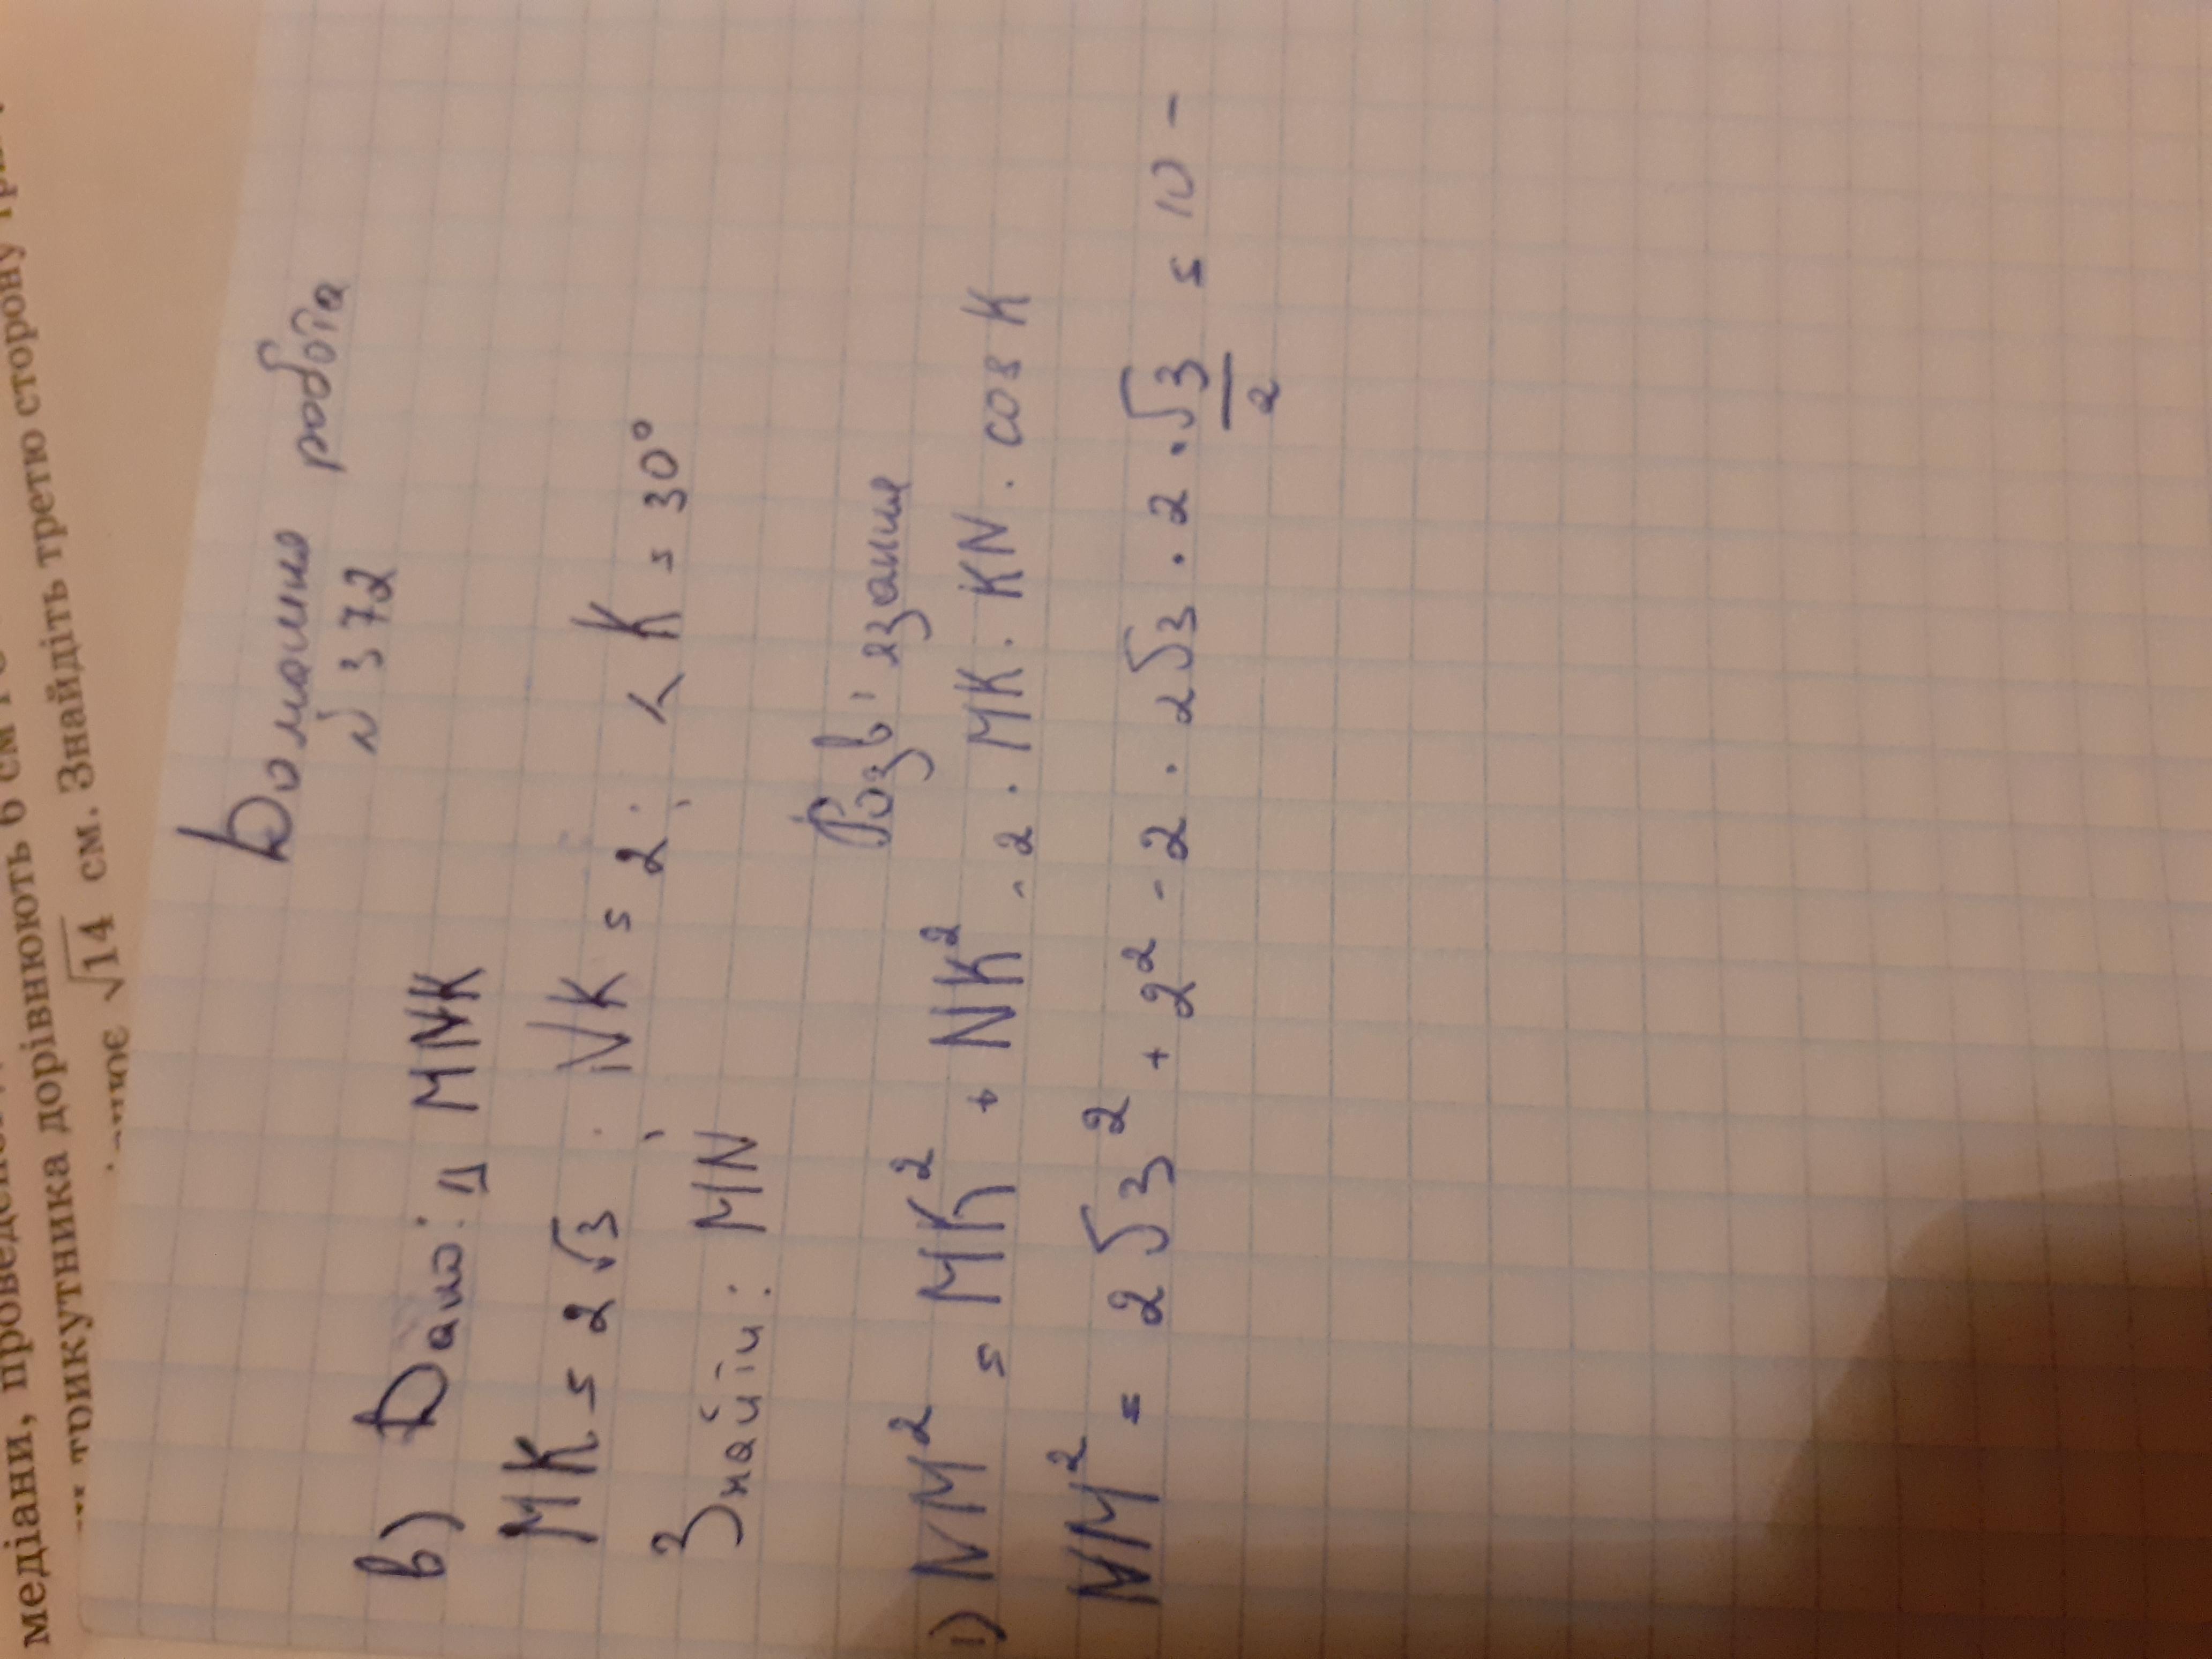 медіани, проведеної
трикутника дорівнюють 6 см
√14 см. Знайдіть третю сторону
Домашня робота
N 372
в) Дано: Δ MNK
MK = 2√3; NK = 2; < K = 30°
Знайти: MN
Розв'язання
1) NM² = MK² + NK² - 2 · MK · KN · cos K
NM² = 2√3² + 2² - 2 · 2√3 · 2 · √3/2 = 10 -